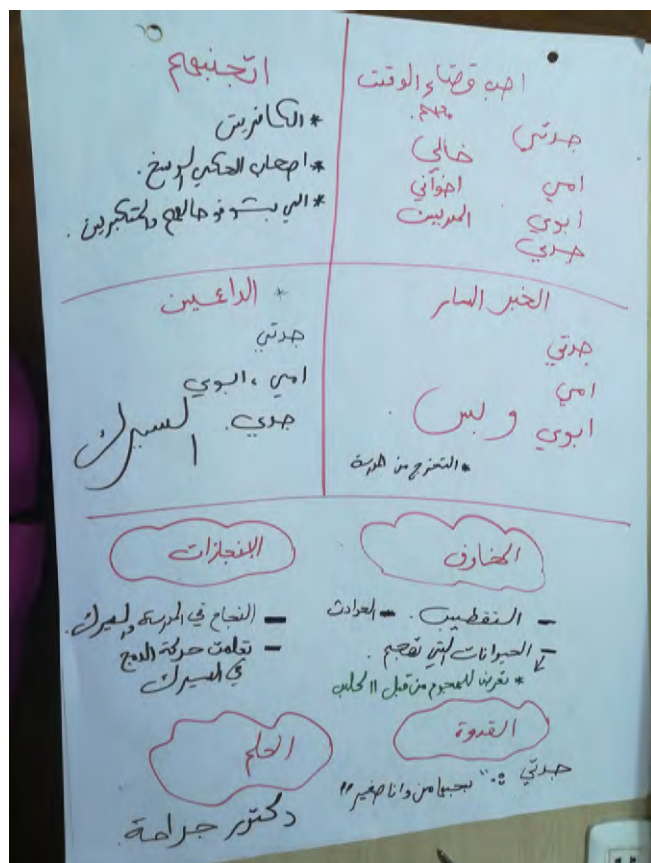 احب قضاء الوقت
معهم.
جدتي
خالي
امي
اخواني
ابوي
المدربين
جدي
اتجنبهم
* الكافرين
* اصحاب الحكي الوسخ.
* الي بشوفو حالهم والمتكبرين.
الخبر السار
جدتي
امي
ابوي
وبس.
* التخرج من المدرسة
* الداعمين
جدتي
امي، ابوي
جدي.
السيرك
المخاوف
- التقطيب. - الحوادث
- الحيوانات التي تهجم.
* تعرض للهجوم من قبل الكلب
الإنجازات
- النجاح في المدرسة والسيرك.
- تعلمت حركة الدمج
في السيرك
القدوة
جدتي : "بحبها من وانا صغير"
الحلم
دكتور جراحة.